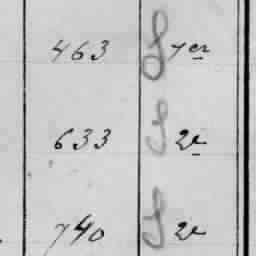 463 S 1er
633 S 2e
740 S 2e